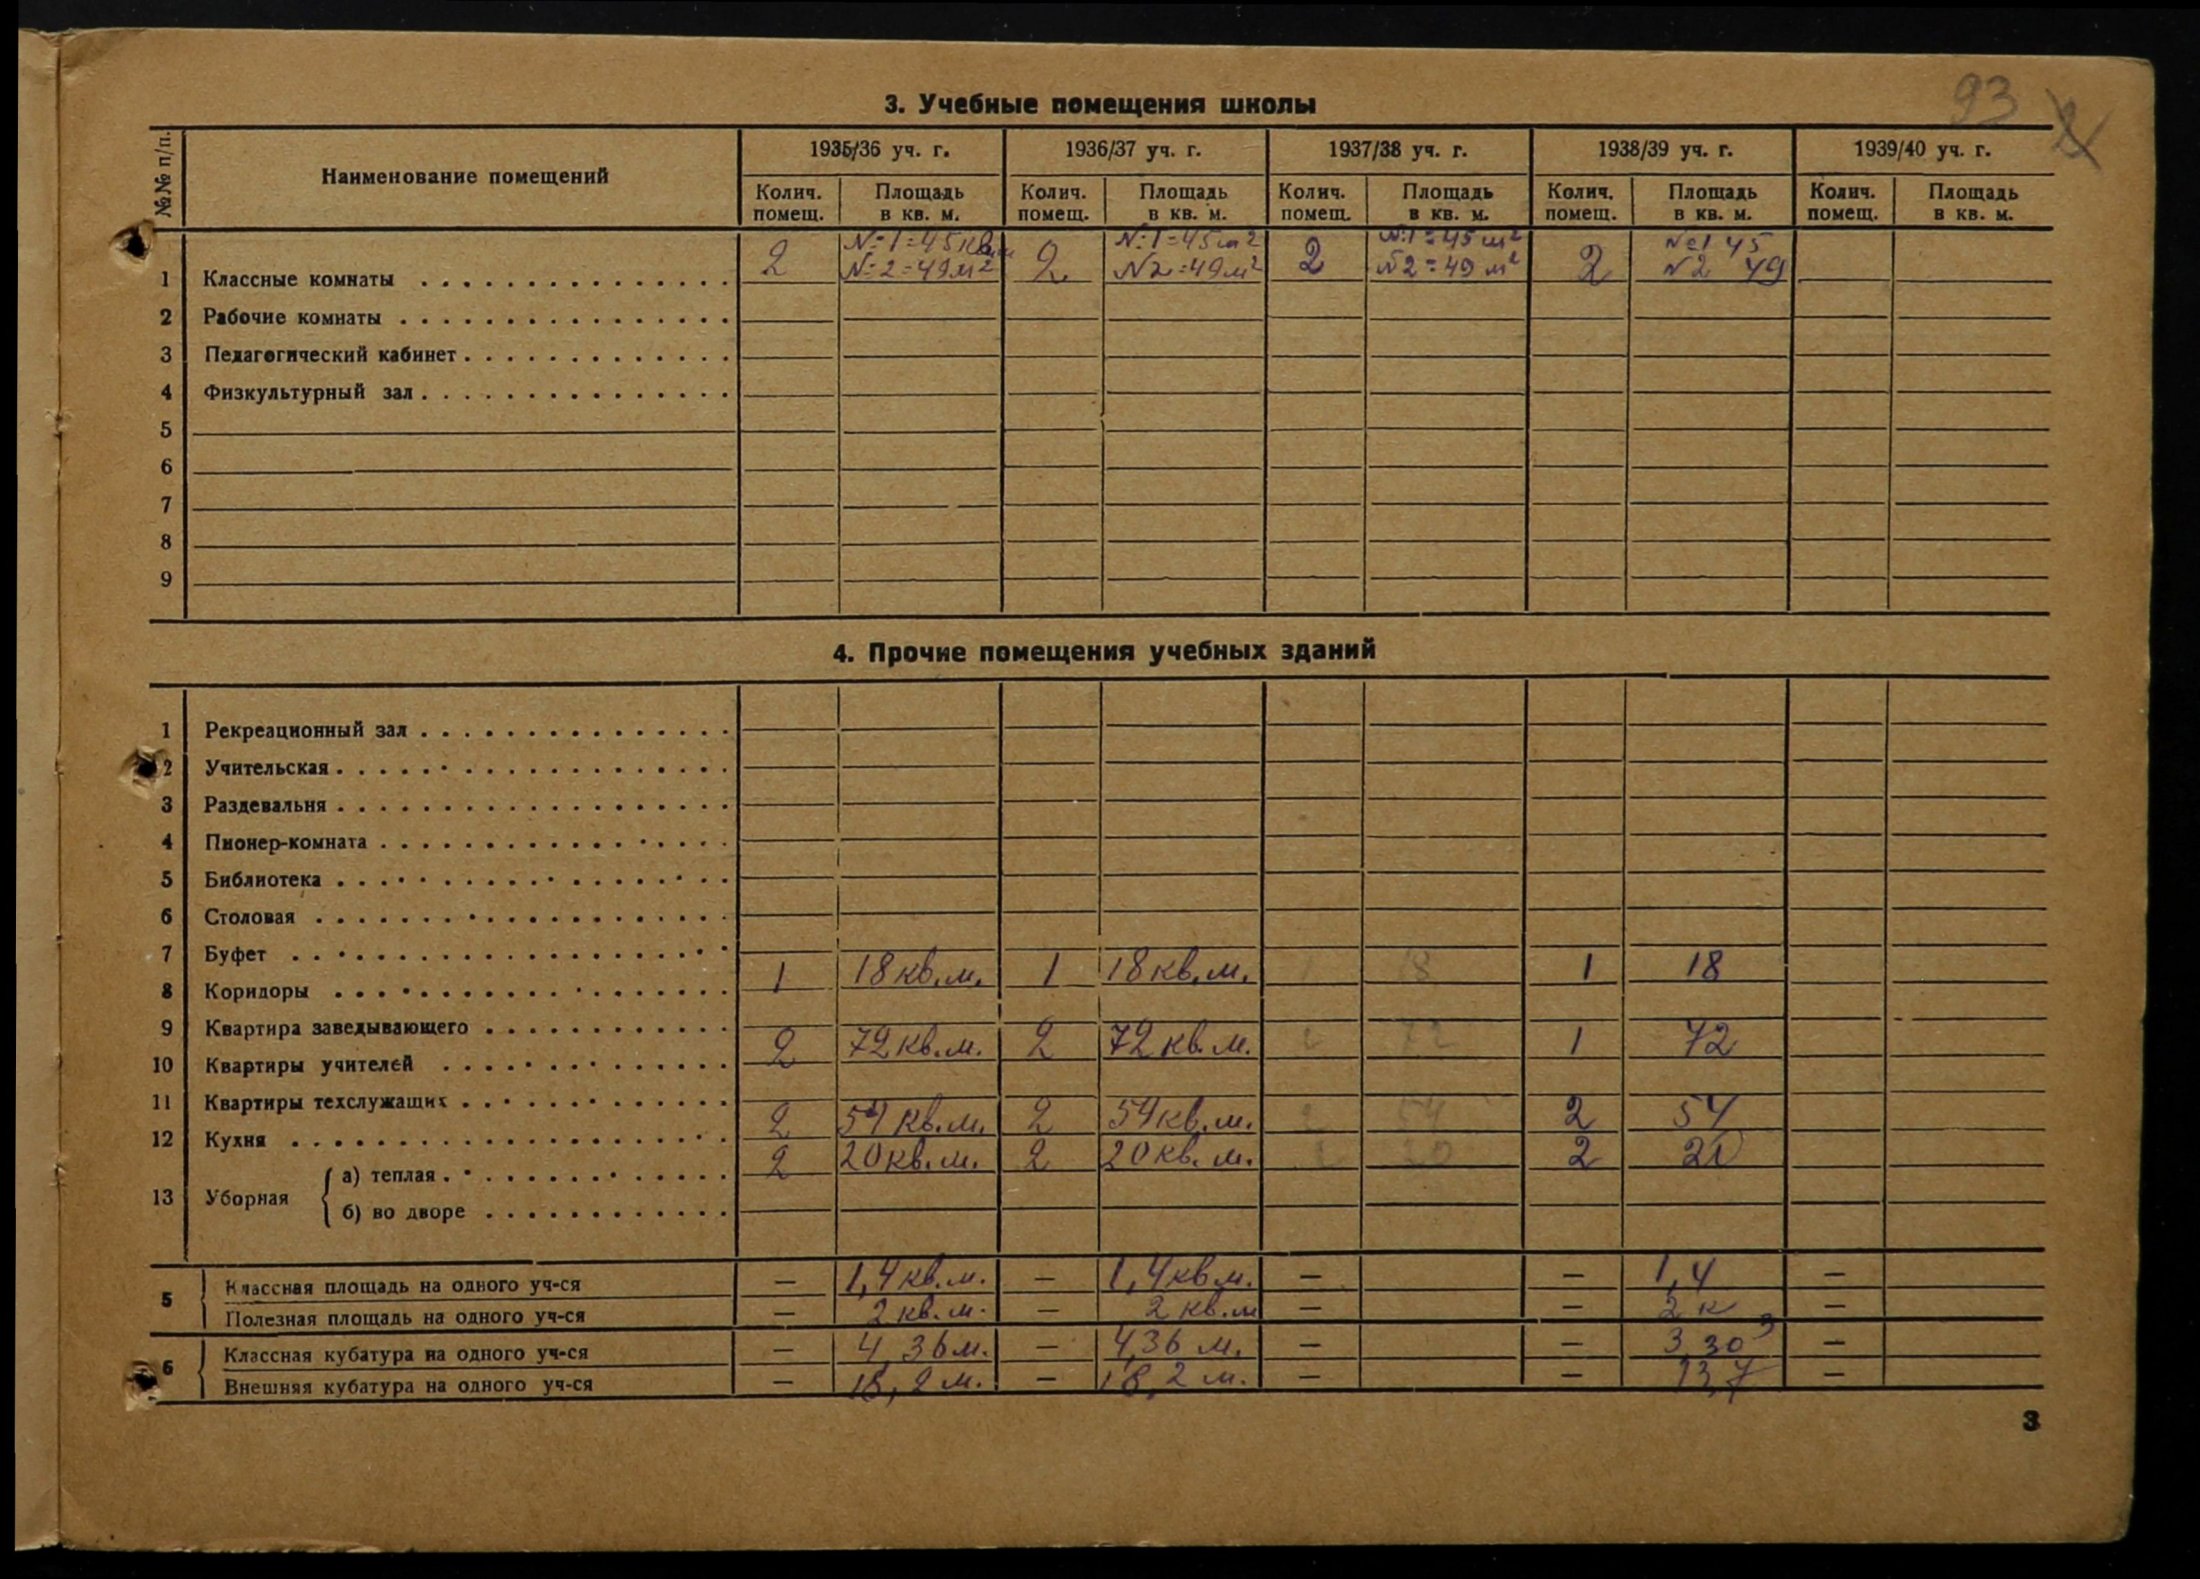 93
3. Учебные помещения школы
№№ п/п. Наименование помещений 1935/36 уч. г. 1936/37 уч. г. 1937/38 уч. г. 1938/39 уч. г. 1939/40 уч. г.
Колич. помещ. Площадь в кв. м. Колич. помещ. Площадь в кв. м. Колич. помещ. Площадь в кв. м. Колич. помещ. Площадь в кв. м. Колич. помещ. Площадь в кв. м.
1 Классные комнаты 2 №1=45 кв.м №2=49 м² 2 №1=45 м² №2=49 м² 2 №1=45 м² №2=49 м² 2 №1 45 №2 49
2 Рабочие комнаты
3 Педагогический кабинет
4 Физкультурный зал
5
6
7
8
9
4. Прочие помещения учебных зданий
1 Рекреационный зал
2 Учительская
3 Раздевальня
4 Пионер-комната
5 Библиотека
6 Столовая
7 Буфет
8 Коридоры 1 18 кв.м. 1 18 кв.м. 1 18 1 18
9 Квартира заведывающего
10 Квартиры учителей 2 72 кв.м. 2 72 кв.м. 2 72 1 72
11 Квартиры техслужащих
12 Кухня 2 54 кв.м. 2 54 кв.м. 2 54 2 54
13 Уборная а) теплая 2 20 кв.м. 2 20 кв.м. 2 20 2 20
б) во дворе
5 Классная площадь на одного уч-ся — 1,4 кв.м. — 1,4 кв м. — — 1,4 —
Полезная площадь на одного уч-ся — 2 кв.м. — 2 кв.м — — 2 к —
6 Классная кубатура на одного уч-ся — 4,36 м. — 4,36 м. — — 3,30 —
Внешняя кубатура на одного уч-ся — 18,2 м. — 18,2 м. — — 13,7 —
3